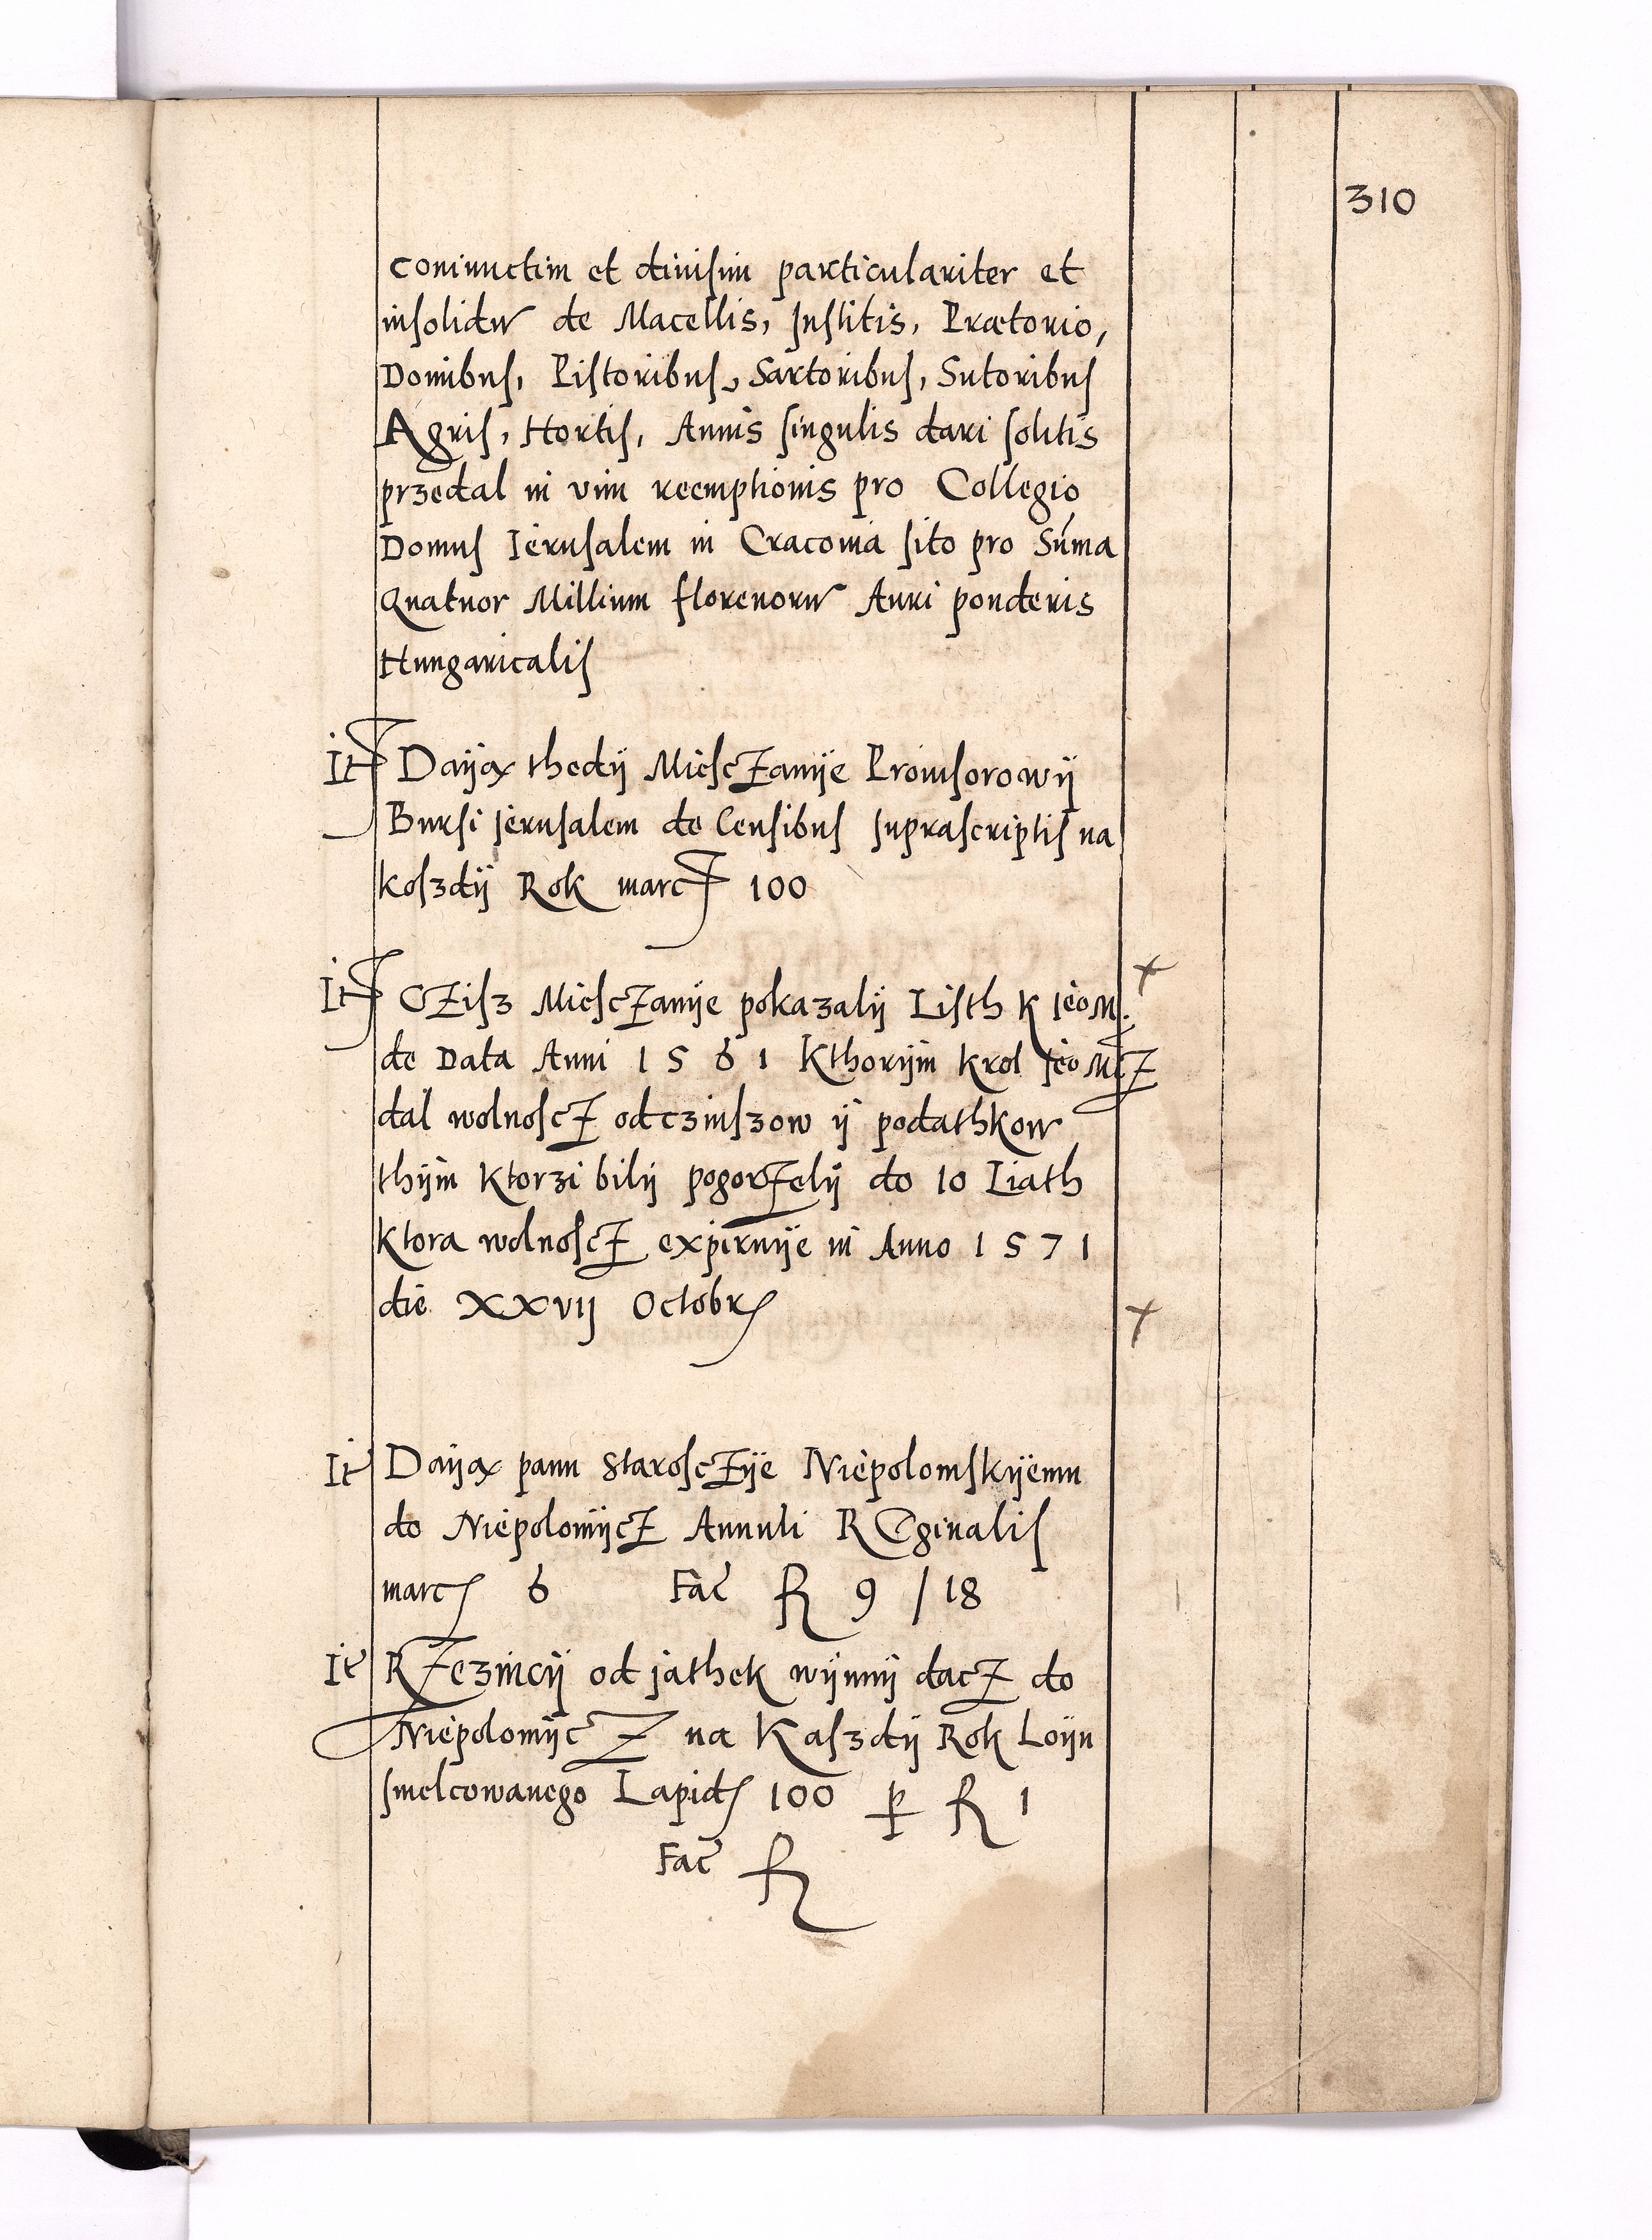 310
coniunctim et diuisim particulariter et
insolidu de Macellis, Institis, Prætorio,
Domibus, Pistoribus, Sartoribus, Sutoribus
Agris, Hortis, Annis singulis dari solitis
przedal in vim reemptionis pro Collegio
Domus Ierusalem in Cracouia sito pro Suma
Quatuor Millium florenoru Auri ponderis
Hungaricalis
It Daÿą thedÿ Miesczanÿe Prouisorowÿ
Bursi Jerusalem de Censibus suprascriptis na
koszdÿ Rok marcz 100
It Czisz Miesczanÿe pokazalÿ Listh K Jeo M.
de Data Anni 1561 Kthorÿm Krol Jeo Mcz
dal wolnoscz od czinszow ÿ podathkow
thÿm Ktorzi bilÿ pogorzelÿ do 10 Liath
Ktora wolnoscz expirnÿe in Anno 1571
die XXVIJ Octobrs
It Daÿą panu Starosczÿe Niepolomskÿemu
do Niepolomÿcz Annuli Reginalis
marcs 6 Fac fl 9 / 18
It Rzezniczÿ od jathek wÿnnÿ dacz do
Niepolomÿcz na Kaszdÿ Rok Loÿu
smelcowanego Lapids 100 p fl 1
Fac fl